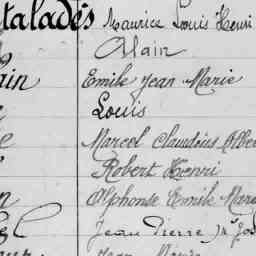 talades Maurice Louis Henri
Alain
ain Emile Jean Marie
Louis
Marcel Claudius
Robert Henri
Alphonse Emile
Jean Pierre
Jean